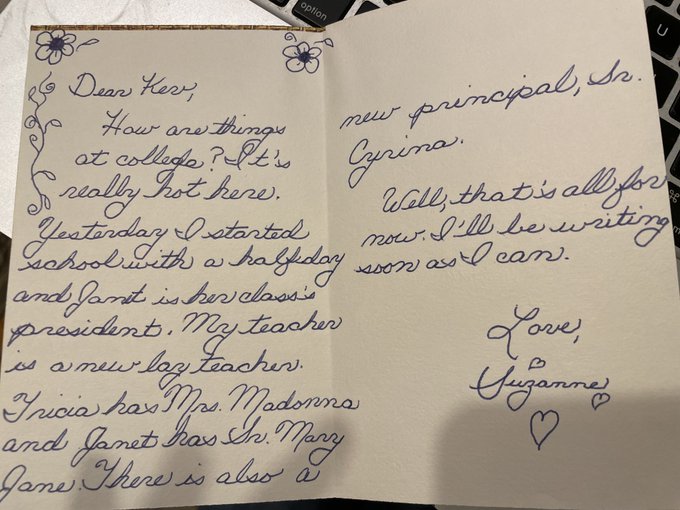 Dear Kev,
How are things
at college? It's
really hot here.
Yesterday I started
school with a halfday
and Janet is her class's
president. My teacher
is a new lay teacher.
Tricia has Mrs. Madonna
and Janet has Sr. Mary
Jane. There is also a
new principal, Sr.
Cyrina.
Well, that's all for
now. I'll be writing
soon as I can.
Love,
Suzanne
option
U